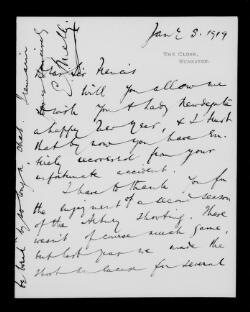 Jany 3. 1919
THE CLOSE,
Dear Sir Francis
Will you allow me
to wish you & Lady Newdegate
a happy New Year, & I trust
that by now you have en-
tirely recovered from your
unfortunate accident.
I have to thank you for
the enjoyment of a second season
of the Arbury Shooting. There
wasn't of course much game,
but last year we made the
shoot for several
remain